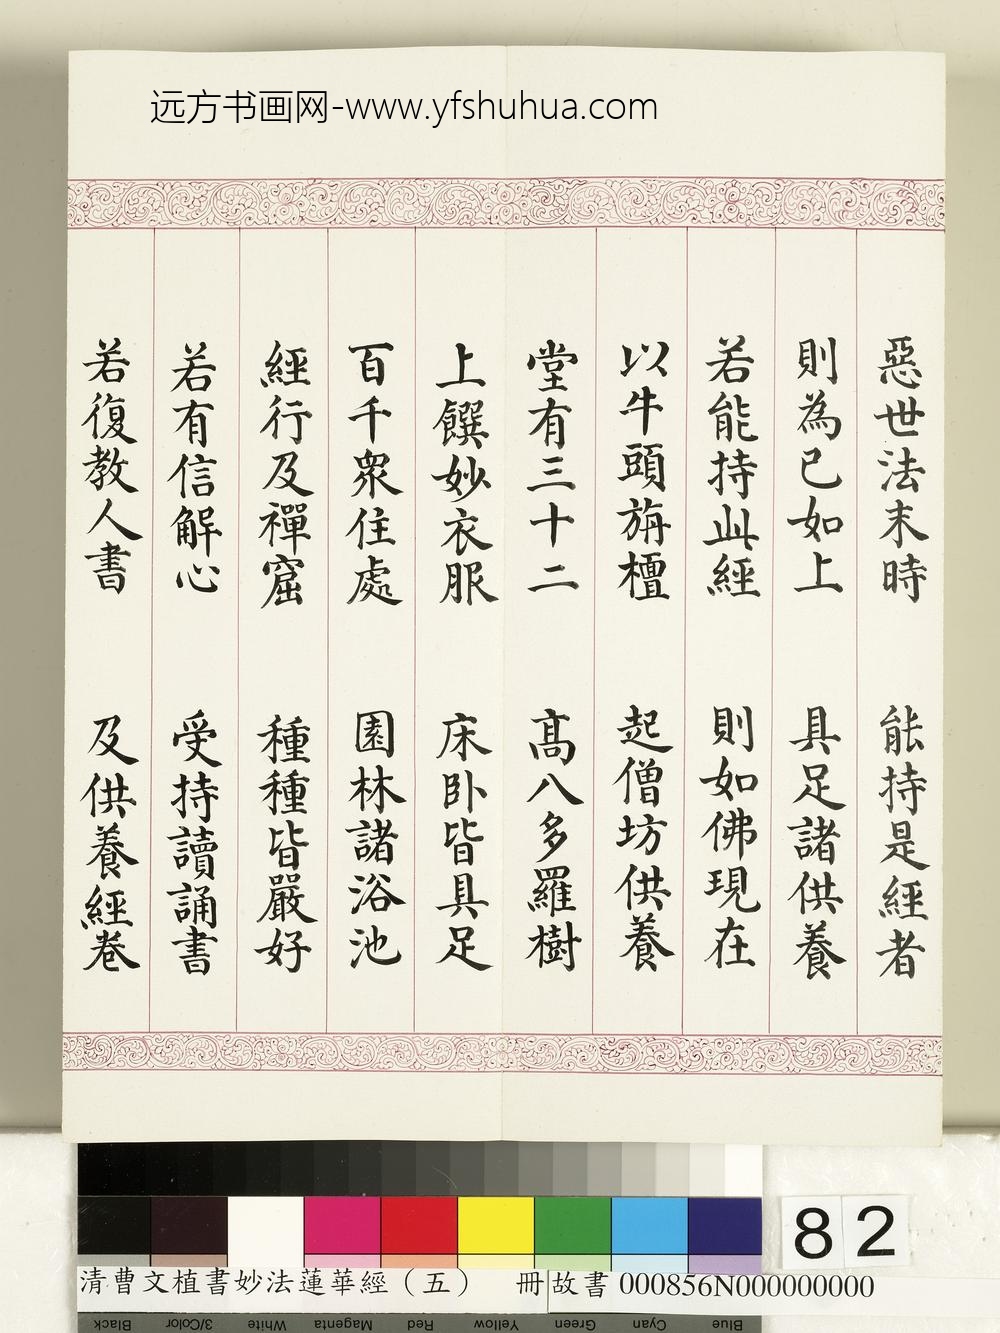 远方书画网-www.yfshuhua.com
惡世法末時 能持是經者
則為已如上 具足諸供養
若能持此經 則如佛現在
以牛頭旃檀 起僧坊供養
堂有三十二 高八多羅樹
上饌妙衣服 床卧皆具足
百千衆住處 園林諸浴池
經行及禪窟 種種皆嚴好
若有信解心 受持讀誦書
若復教人書 及供養經卷
82
清曹文植書妙法蓮華經（五） 冊 故書000856N000000000
Black 3/Color White Magenta Red Yellow Green Cyan Blue